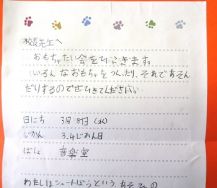 校長先生へ
おもちゃたい会をひらきます。
いろんなおもちゃをつくったり、それであそん
だりするのでぜひきてください。
日にち 3月8日(水)
じかん 3.4じかん目
ばしょ 音楽室
わたしはシュートぼうという、あそびの